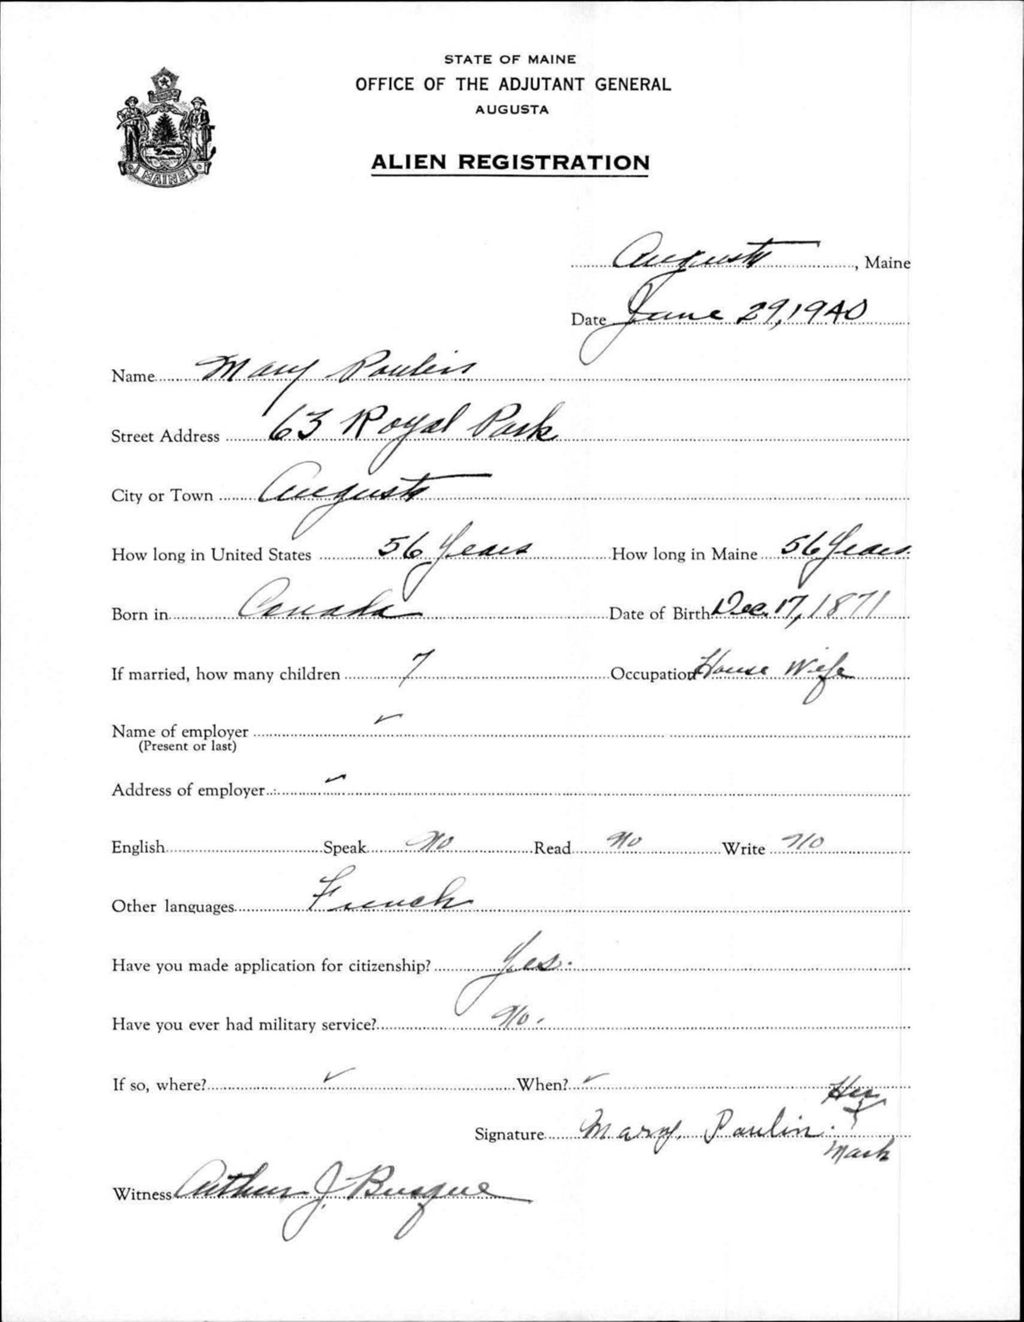 STATE OF MAINE
OFFICE OF THE ADJUTANT GENERAL
AUGUSTA
ALIEN REGISTRATION
MAINE
Augusta, Maine
Date June 29, 1940
Name Mary Poulin
Street Address 63 Royal Park
City or Town Augusta
How long in United States 56 Years How long in Maine 56 Years
Born in Canada Date of Birth Dec. 17, 1871
If married, how many children 7 Occupation House Wife
Name of employer ✓
(Present or last)
Address of employer ✓
English Speak No Read No Write No
Other languages French
Have you made application for citizenship? Yes.
Have you ever had military service? No.
If so, where? ✓ When? ✓
Her
Signature Mary Paulin. X
Mark
Witness Arthur J. Busque